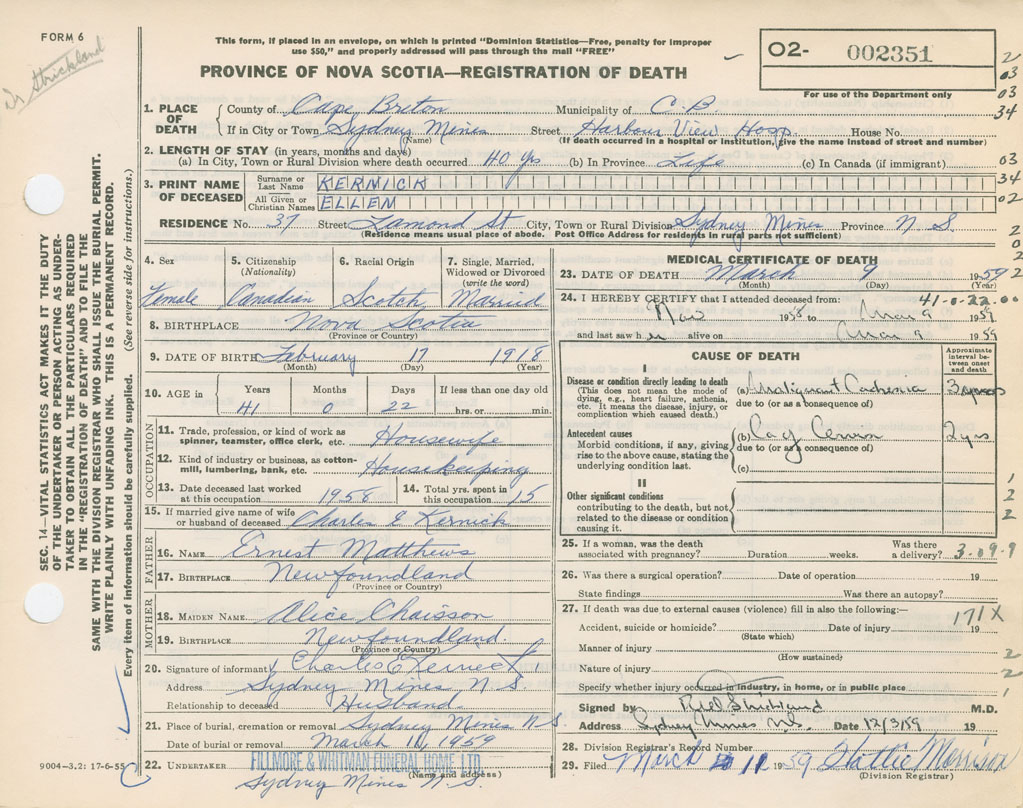 FORM 6
Dr Strickland
This form, if placed in an envelope, on which is printed "Dominion Statistics—Free, penalty for improper
use $50," and properly addressed will pass through the mail "FREE"
PROVINCE OF NOVA SCOTIA—REGISTRATION OF DEATH
O2- 002351
For use of the Department only
1. PLACE OF DEATH
County of Cape Breton Municipality of C.B
If in City or Town Sydney Mines Street Harbour View Hosp. House No.
(Name) (If death occurred in a hospital or institution, give the name instead of street and number)
2. LENGTH OF STAY (in years, months and days)
(a) In City, Town or Rural Division where death occurred 40 yrs (b) In Province Life (c) In Canada (if immigrant)
3. PRINT NAME OF DECEASED
Surname or Last Name KERNICK
All Given or Christian Names ELLEN
RESIDENCE No. 37 Street Lamond St City, Town or Rural Division Sydney Mines Province N.S.
(Residence means usual place of abode. Post Office Address for residents in rural parts not sufficient)
4. Sex 5. Citizenship (Nationality) 6. Racial Origin 7. Single, Married, Widowed or Divorced (write the word)
Female Canadian Scotch Married
8. BIRTHPLACE Nova Scotia
(Province or Country)
9. DATE OF BIRTH February 17 1918
(Month) (Day) (Year)
10. AGE in Years Months Days If less than one day old
41 0 22 hrs. or min.
OCCUPATION
11. Trade, profession, or kind of work as spinner, teamster, office clerk, etc. Housewife
12. Kind of industry or business, as cotton-mill, lumbering, bank, etc. Housekeeping
13. Date deceased last worked at this occupation 1958 14. Total yrs. spent in this occupation 15
15. If married give name of wife or husband of deceased Charles E Kernick
FATHER
16. NAME Ernest Matthews
17. BIRTHPLACE Newfoundland
(Province or Country)
MOTHER
18. MAIDEN NAME Alice Chaisson
19. BIRTHPLACE Newfoundland.
(Province or Country)
20. Signature of informant Charles E Kernick
Address Sydney Mines N.S.
Relationship to deceased Husband
21. Place of burial, cremation or removal Sydney Mines N.S.
Date of burial or removal March 11, 1959
22. UNDERTAKER FILLMORE & WHITMAN FUNERAL HOME LTD
(Name and address)
Sydney Mines N.S.
9004—3.2: 17-6-55
MEDICAL CERTIFICATE OF DEATH
23. DATE OF DEATH March 9 1959
(Month) (Day) (Year)
41-0-22.00
24. I HEREBY CERTIFY that I attended deceased from:
Nov 1958 to Mar 9 1959
and last saw her alive on Mar 9 1959
CAUSE OF DEATH
Approximate interval between onset and death
I
Disease or condition directly leading to death
(This does not mean the mode of dying, e.g., heart failure, asthenia, etc. It means the disease, injury, or complication which caused death.)
(a) Malignant Cachexia
due to (or as a consequence of)
Antecedent causes
Morbid conditions, if any, giving rise to the above cause, stating the underlying condition last.
(b) Ca of Cervix 2 yrs
due to (or as a consequence of)
(c)
II
Other significant conditions
contributing to the death, but not related to the disease or condition causing it.
25. If a woman, was the death associated with pregnancy? Duration weeks. Was there a delivery? 3-09-9
26. Was there a surgical operation? Date of operation 19
State findings Was there an autopsy?
27. If death was due to external causes (violence) fill in also the following:—
171X
Accident, suicide or homicide? Date of injury 19
(State which)
Manner of injury
(How sustained)
Nature of injury
Specify whether injury occurred in industry, in home, or in public place
Signed by Strickland M.D.
Address Sydney Mines N.S. Date 12/3/59 19
28. Division Registrar's Record Number
29. Filed March 11 1959 Hattie Morrison
(Division Registrar)
2
03
03
34
03
34
02
2
0
2
2
1
2
2
1
2
2
1
SEC. 14—VITAL STATISTICS ACT MAKES IT THE DUTY
OF THE UNDERTAKER OR PERSON ACTING AS UNDER-
TAKER TO OBTAIN ALL THE PARTICULARS REQUIRED
IN THE "REGISTRATION OF DEATH" AND TO FILE THE
SAME WITH THE DIVISION REGISTRAR WHO SHALL ISSUE THE BURIAL PERMIT.
WRITE PLAINLY WITH UNFADING INK. THIS IS A PERMANENT RECORD.
Every item of information should be carefully supplied. (See reverse side for instructions.)